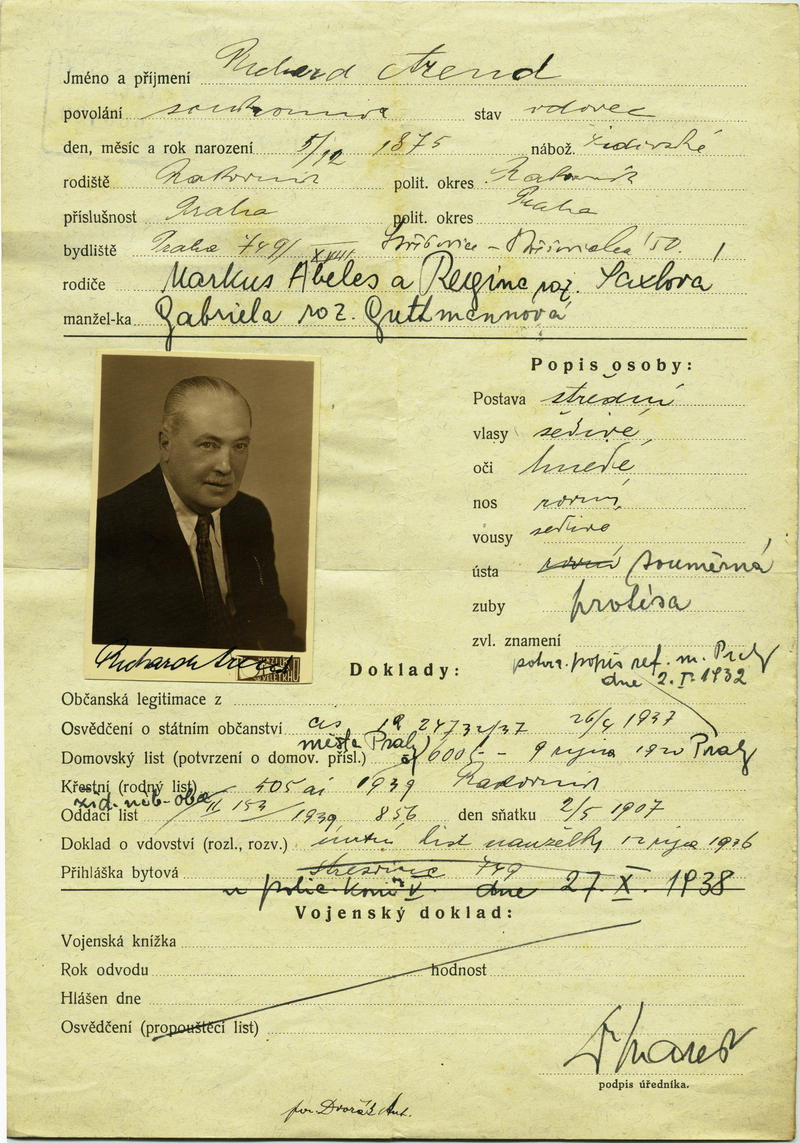 Jméno a příjmení Richard Arend
povolání stav vdovec
den, měsíc a rok narození 5/12 1875 nábož. židovské
rodiště Rakovník polit. okres Rakovník
příslušnost Praha polit. okres Praha
bydliště Praha 749/XVIII Střešovice -
rodiče Markus Abeles a Regine roz. Saxlova
manžel-ka Gabriela roz. Guttmannová
Popis osoby:
Postava střední
vlasy šedivé
oči hnedé
nos rovný
vousy šedivé
ústa rovní souměrná
zuby protésa
zvl. znamení
potvr. popis ref. m. Prahy
dne 2.I.1932
Richard Arend
Doklady:
Občanská legitimace z
Osvědčení o státním občanství čís 24732/37 26/4 1937
města Prahy
Domovský list (potvrzení o domov. přísl.) 9 října 1920 Prahy
Křestní (rodný list) 505 ai 1939 Rakovník
žid. náb. obc
Oddací list II 153/1939 856 den sňatku 2/5 1907
Doklad o vdovství (rozl., rozv.) úmrtní list manželky října 1936
Přihláška bytová Střešovice 749
u polic. kom. V. dne 27. X. 1938
Vojenský doklad:
Vojenská knížka
Rok odvodu hodnost
Hlášen dne
Osvědčení (propouštěcí list)
podpis úředníka.
por. Dvořák Ant.